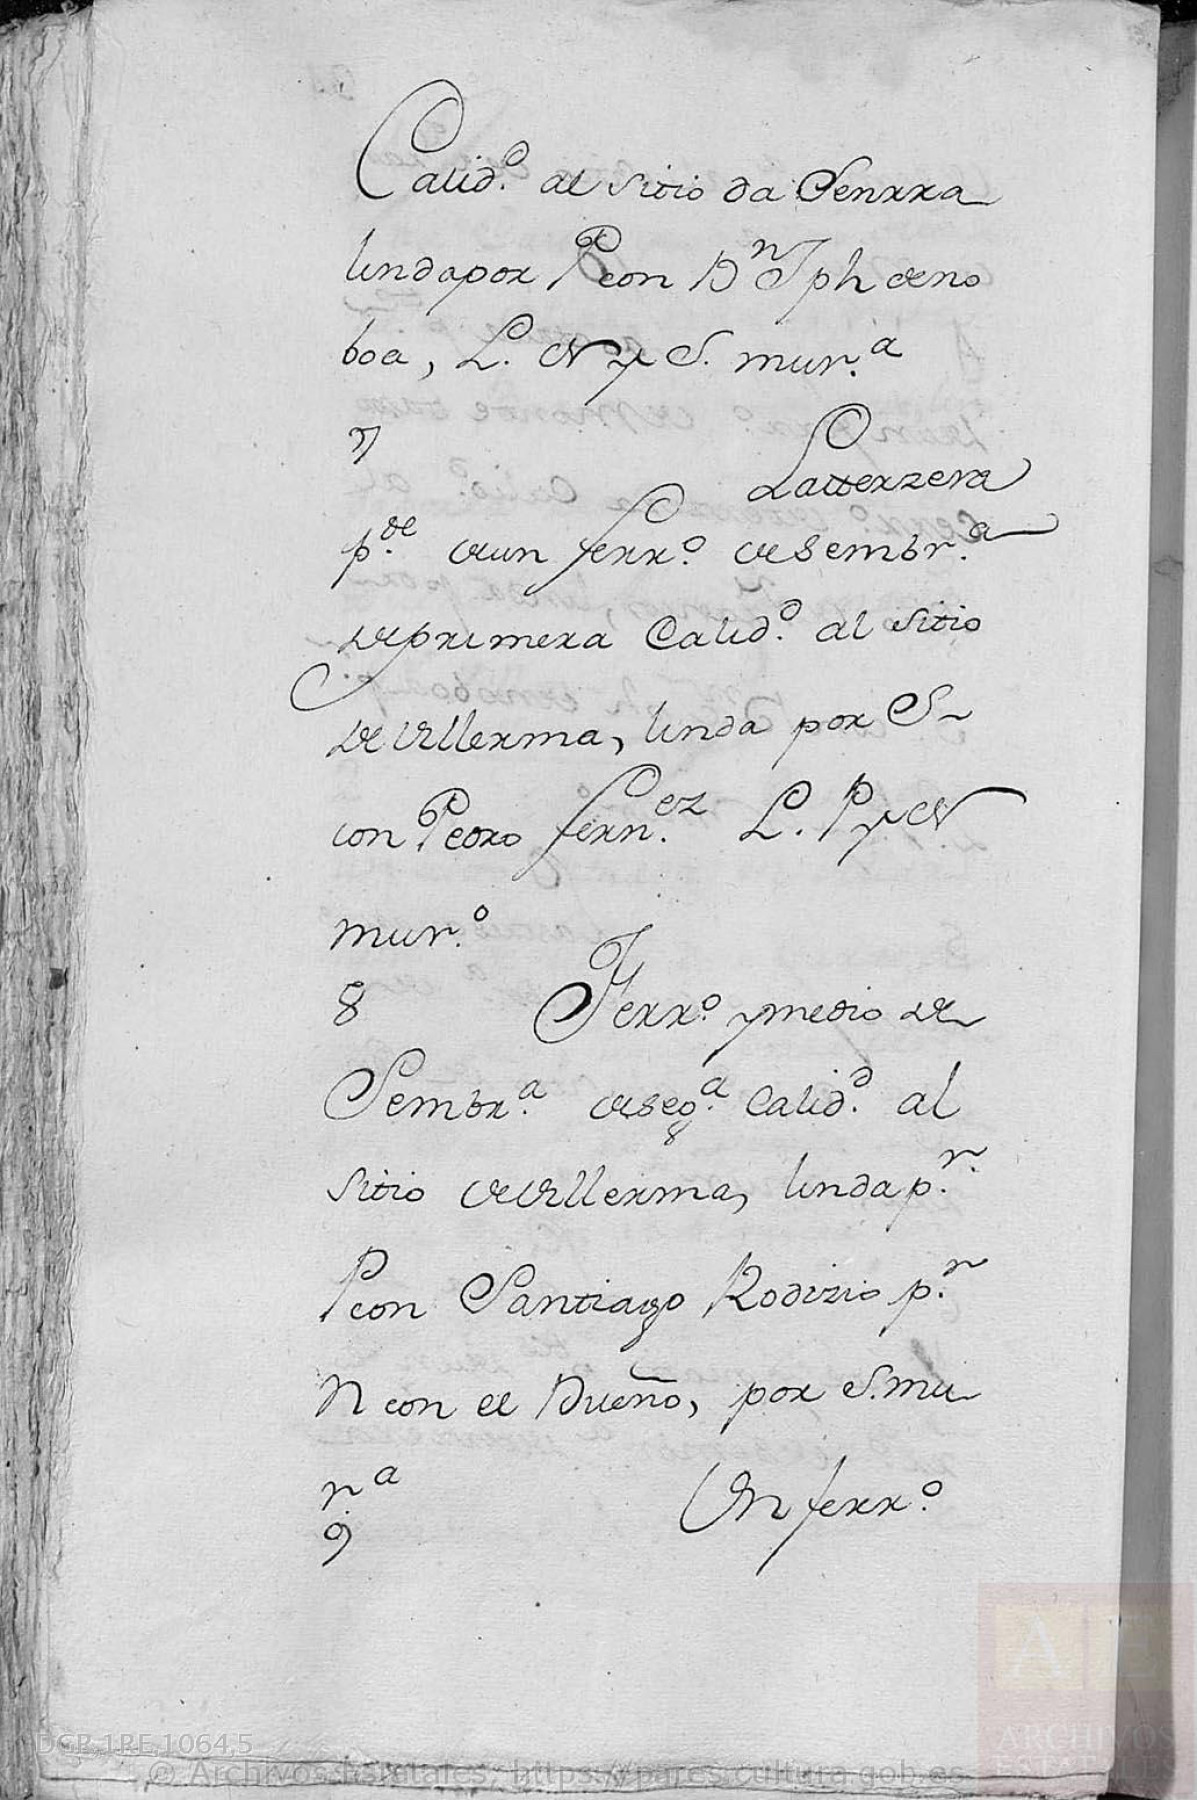 Calid.ᵈ al sitio da Senrra
linda por P con Dⁿ Jph de no
boa, L. N y S. mur.ᵃ
7 La terzera
p.ᵗᵉ de un ferr.º de Sembr.ᵃ
de primera Calid.ᵈ al sitio
de Ullerma, linda por S
con Pedro fern.ᵉᶻ L. P y N
mur.º
8 Ferr.º y medio de
Sembr.ᵃ de seg.ᵃ Calid.ᵈ al
sitio de Ullerma, linda p.ʳ
P con Santiago Rodizio p.ʳ
N con el Dueño, por S. mu
r.ᵃ
9 Un ferr.º
DGR,1RE,1064,5
© Archivos Estatales, https://pares.cultura.gob.es
AE
ARCHIVOS
ESTATALES